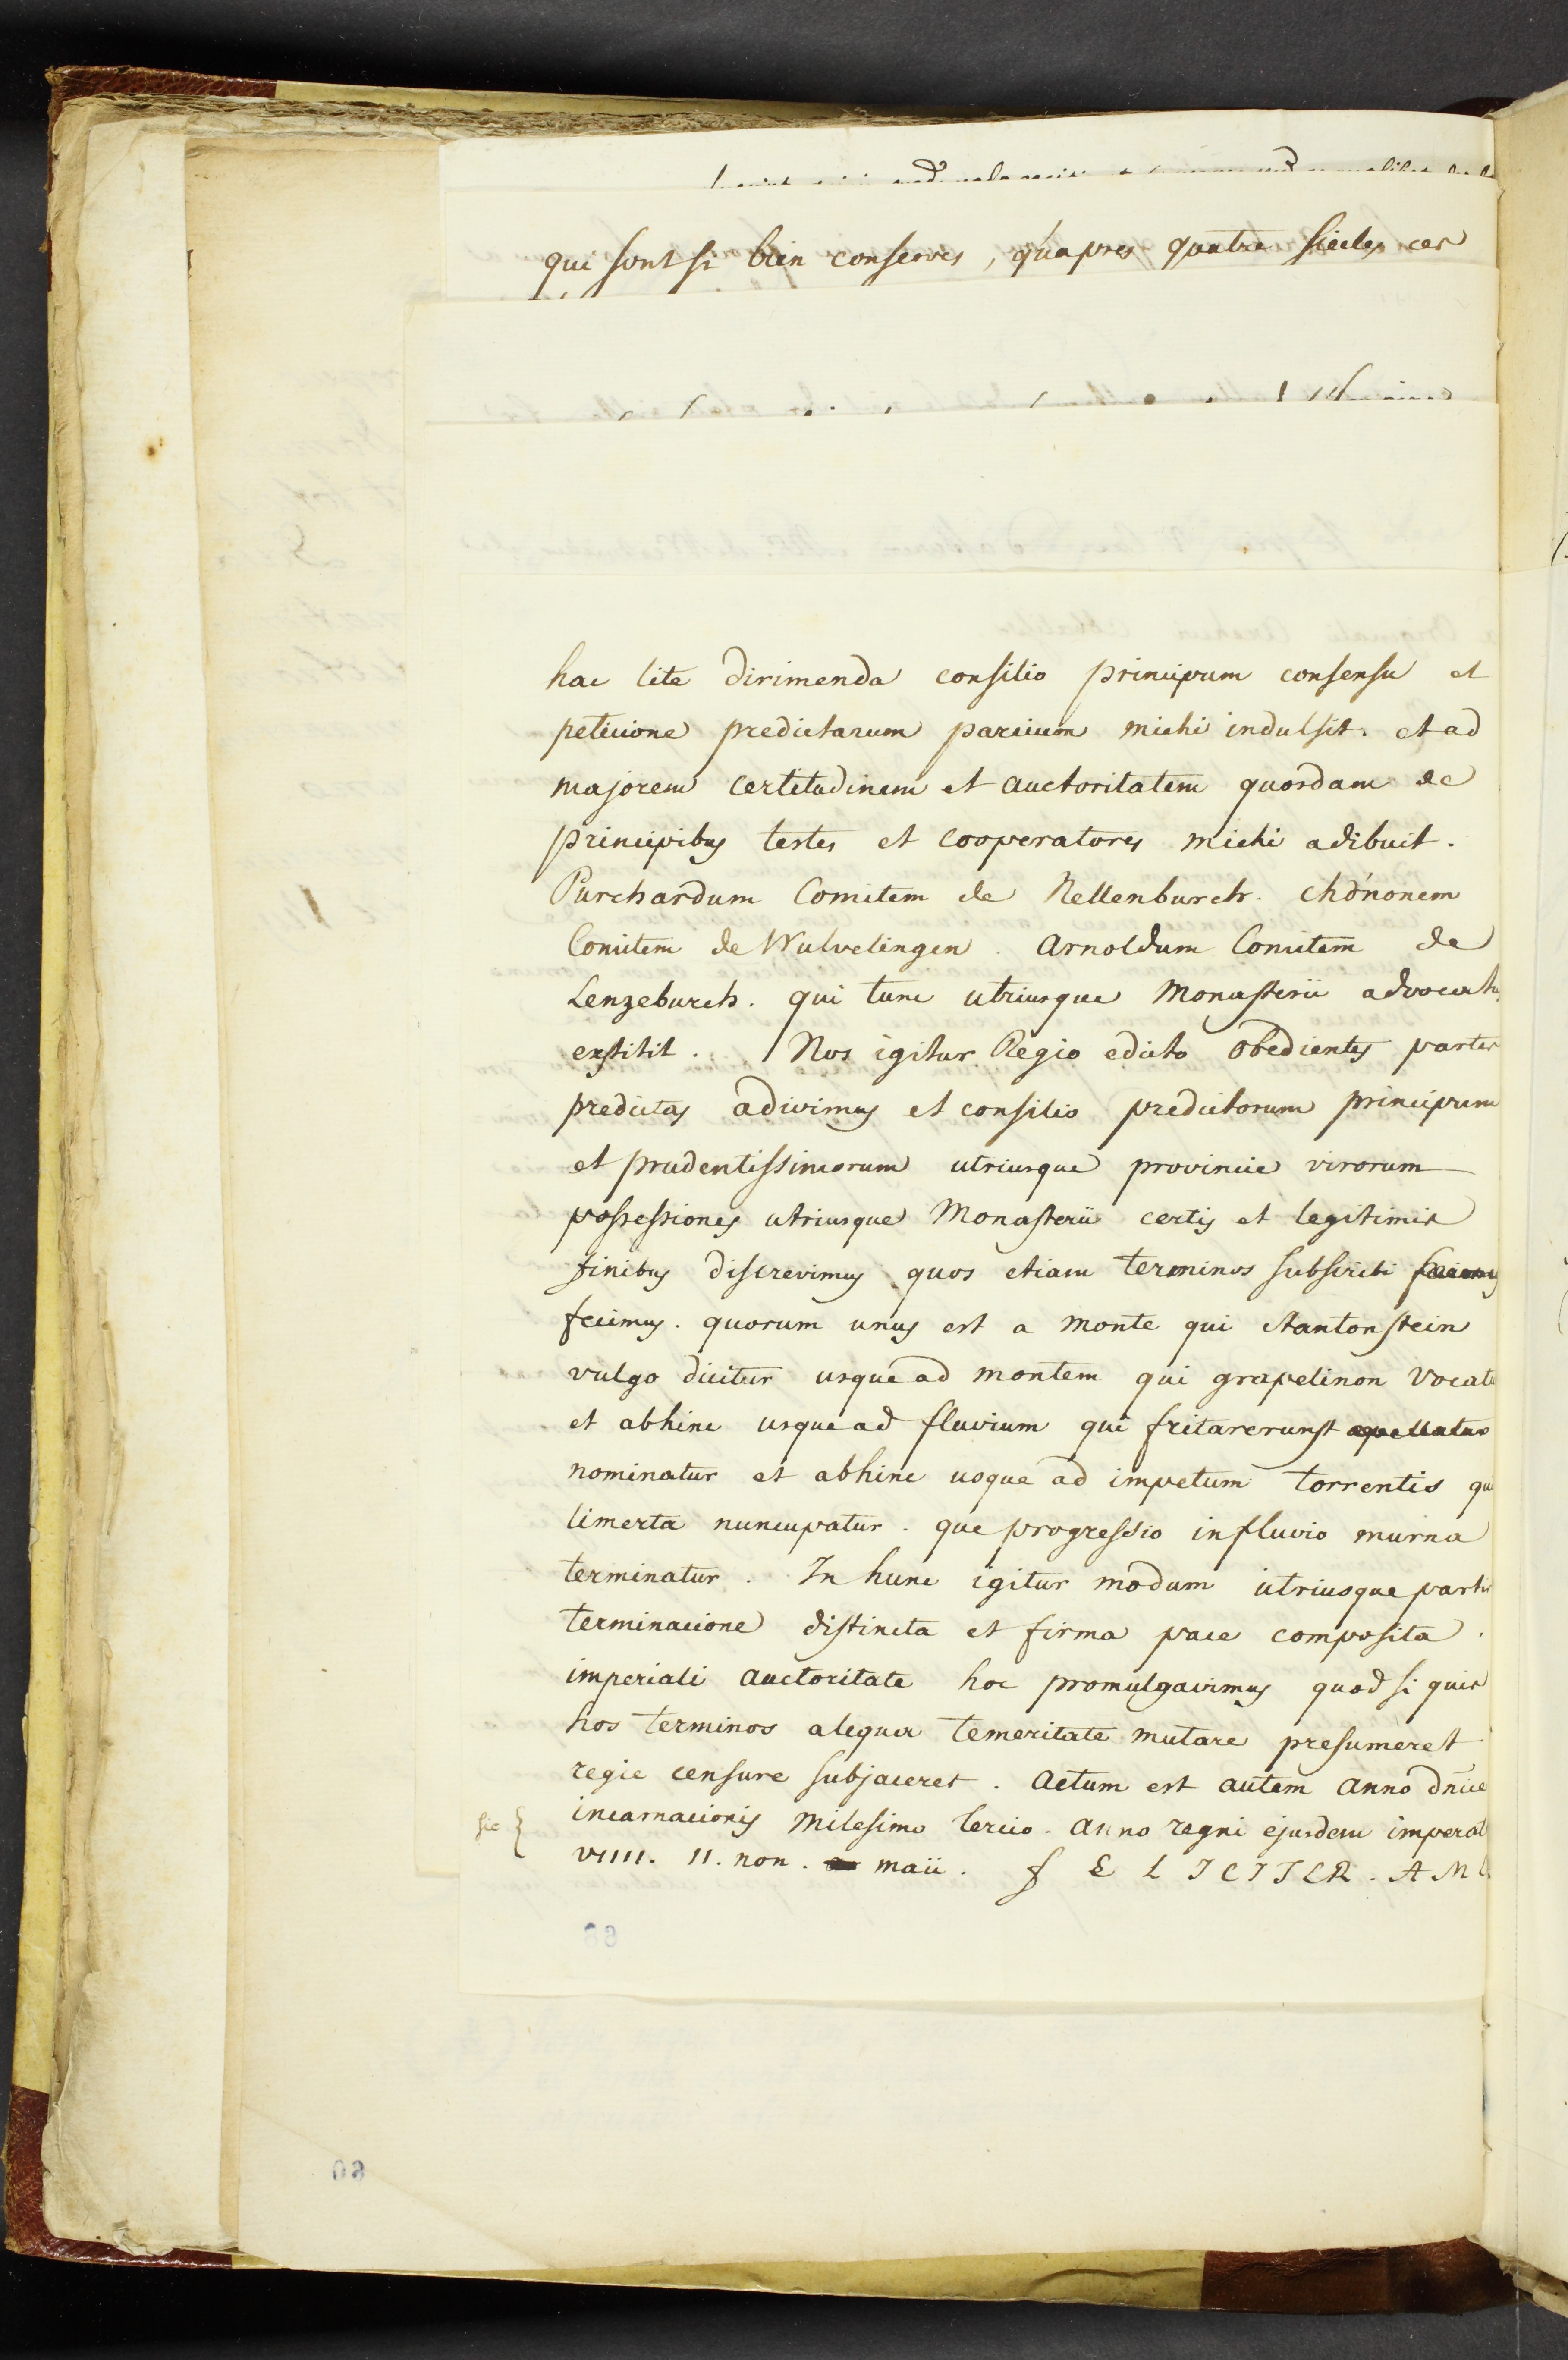 qui sont si bien conservés, qu'apres quatre siecles ces
hac lite dirimenda consilio principum consensu et
peticione predictarum parcium michi indulsit. et ad
majorem certitudinem et auctoritatem quosdam de
principibus testes et cooperatores michi adibuit.
Purchardum Comitem de Nellenburch. chŏnonem
Comitem de Wulvelingen. Arnoldum Comitem de
Lenzeburch. qui tunc utriusque Monasterii advocatus
exstitit. Nos igitur Regio edicto obedientes partes
predictas adivimus et consilio predictorum principum
et prudentissimorum utriusque provincie virorum
possessiones utriusque Monasterii certis et legitimis
finibus discrevimus quos etiam terminos subscribi
fecimus. quorum unus est a monte qui stantonstein
vulgo dicitur usque ad montem qui grapelinon vocat
et abhinc usque ad fluvium qui fritarerunst
nominatur et abhinc usque ad impetum torrentis qu
limerta nuncupatur. que progressio in fluvio murna
terminatur. In hunc igitur modum utriusque partis
terminacione distincta et firma pace composita.
imperiali auctoritate hoc promulgavimus quod si quis
hos terminos alequa temeritate mutare presumeret
regie censure subjaceret. Actum est autem Anno dn̄ice
sic { incarnacionis Milesimo tercio. Anno regni ejusdem imperat
VIIII. II. non. maii. f E L I C I T E R. A M